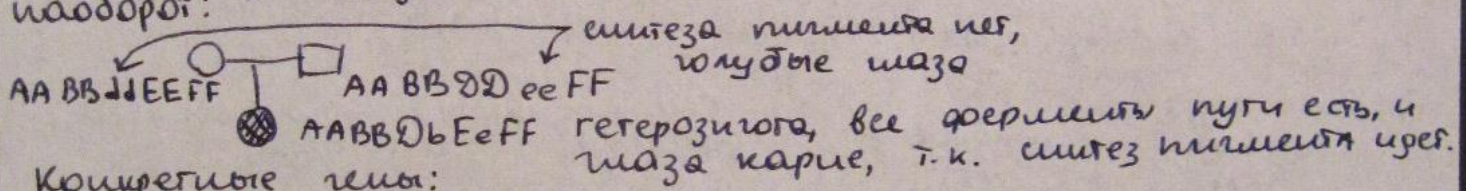 наоборот:
синтеза пигмента нет,
голубые глаза
AA BB dd EE FF AA BB DD ee FF
AABB Db Ee FF гетерозигота, все ферменты пути есть, и
глаза карие, т.к. синтез пигмента идет.
Конкретные гены: